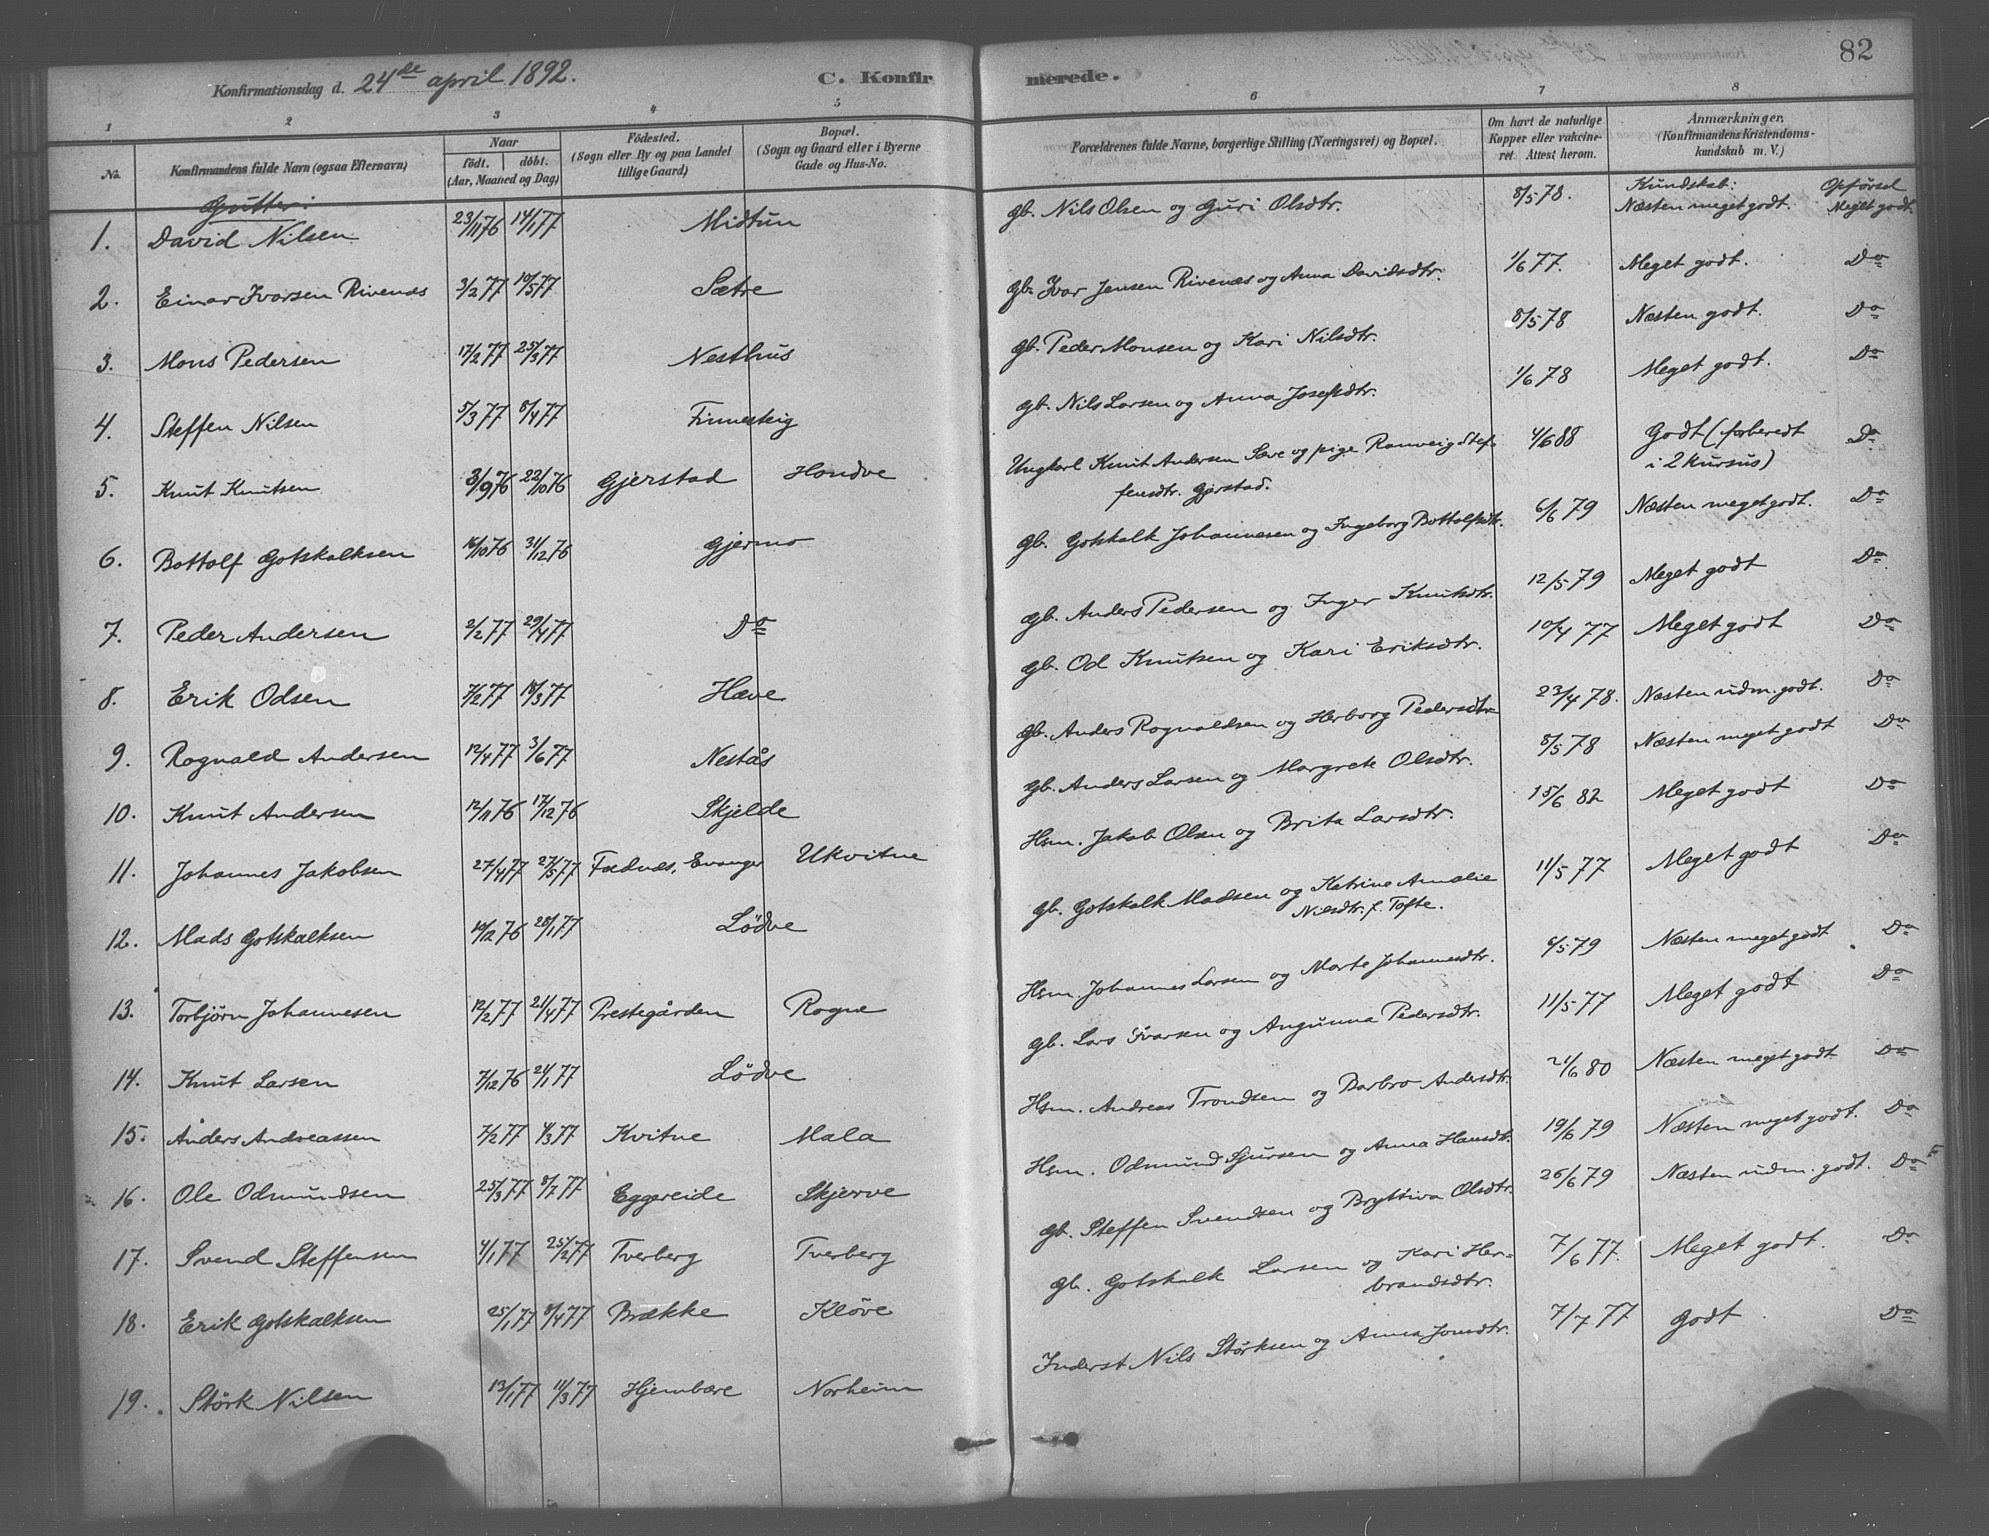 82
Konfirmationsdag d. 24de april 1892. C. Konfirmerede.
1 2 3 4 5 6 7 8
No. Konfirmandens fulde Navn (ogsaa Efternavn) Naar født. døbt. (Aar, Maaned og Dag) Fødested. (Sogn eller By og paa Landet tillige Gaard) Bopæl. (Sogn og Gaard eller i Byerne Gade og Hus-No. Forældrenes fulde Navne, borgerlige Stilling (Næringsvei) og Bopæl. Om havt de naturlige Kopper eller vakcineret. Attest herom. Anmærkninger. (Konfirmandens Kristendomskundskab m. V.)
Gutter: Kundskab: Opførsel
1. David Nilsen 23/11 76 14/1 77 Midtun Gb. Nils Olsen og Guri Olsdtr. 8/5 78. Næsten meget godt. Meget godt.
2. Einar Ivarsen Rivenæs 3/2 77 10/5 77 Sætre Gb. Ivar Jensen Rivenæs og Anna Davidsdtr. 1/6 77. Meget godt. Do
3. Mons Pedersen 17/2 77 25/3 77 Nesthus Gb. Peder Monsen og Kari Nilsdtr. 8/5 78 Næsten godt. Do
4. Steffen Nilsen 5/3 77 8/4 77 Finnesteig Gb. Nils Larsen og Anna Josefsdtr. 1/6 78 Meget godt. Do
5. Knut Knutsen 3/9 76 22/10 76 Gjerstad Hondve Ungkarl Knut Andersen Sæve og pige Ranveig Steffensdtr. Gjerstad. 4/6 88 Godt (forberedt i 2 kursus) Do
6. Bottolf Gotskalksen 16/10 76 31/12 76 Gjermo Gb. Gotskalk Johannesen og Ingeborg Bottolfsdtr. 6/6 79 Næsten meget godt. Do
7. Peder Andersen 2/2 77 29/4 77 Do Gb. Anders Pedersen og Inger Knutsdtr. 12/5 79 Meget godt Do
8. Erik Odsen 7/2 77 18/3 77 Hæve Gb. Od Knutsen og Kari Eriksdtr. 10/4 77 Meget godt Do
9. Rognald Andersen 12/4 77 3/6 77 Nestås Gb. Anders Rognaldsen og Herborg Pedersdtr 23/4 78. Næsten udm. godt. Do
10. Knut Andersen 12/11 76 17/12 76 Skjelde Gb. Anders Larsen og Margrete Olsdtr. 8/5 78 Næsten meget godt Do
11. Johannes Jakobsen 27/4 77 27/5 77 Fadnæs, Evanger Ukvitne Hsm. Jakob Olsen og Brita Larsdtr. 15/6 82 Meget godt Do
12. Mads Gotskalksen 14/12 76 28/1 77 Lødve Gb. Gotskalk Madsen og Katrine Amalie Nilsdtr. f. Tofte. 11/5 77 Meget godt Do
13. Torbjørn Johannesen 12/2 77 21/4 77 Prestegården Rogne Hsm. Johannes Larsen og Marte Johannesdtr. 6/5 79 Næsten meget godt Do
14. Knut Larsen 7/12 76 21/1 77 Lødve Gb. Lars Ivarsen og Angunna Pedersdtr. 11/5 77 Meget godt Do
15. Anders Andreassen 7/2 77 4/3 77 Kvitne Mala Hsm. Andreas Trondsen og Barbro Andersdtr. 21/6 80 Næsten meget godt Do
16. Ole Odmundsen 25/3 77 8/7 77 Eggereide Skjerve Hsm. Odmund Sjursen og Anna Hansdtr. 19/6 79 Næsten meget godt. Do
17. Svend Steffensen 4/1 77 25/2 77 Tverberg Tverberg Gb. Steffen Svendsen og Bryttiva Olsdtr. 26/6 79 Næsten udm. godt. Do
18. Erik Gotskalksen 25/1 77 8/4 77 Brække Kløve Gb. Gotskalk Larsen og Kari Herbrandsdtr. 7/6 77. Meget godt. Do
19. Størk Nilsen 13/1 77 11/3 77 Hjembære Norheim Inderst Nils Størksen og Anna Jonsdtr. 7/7 77 Godt Do